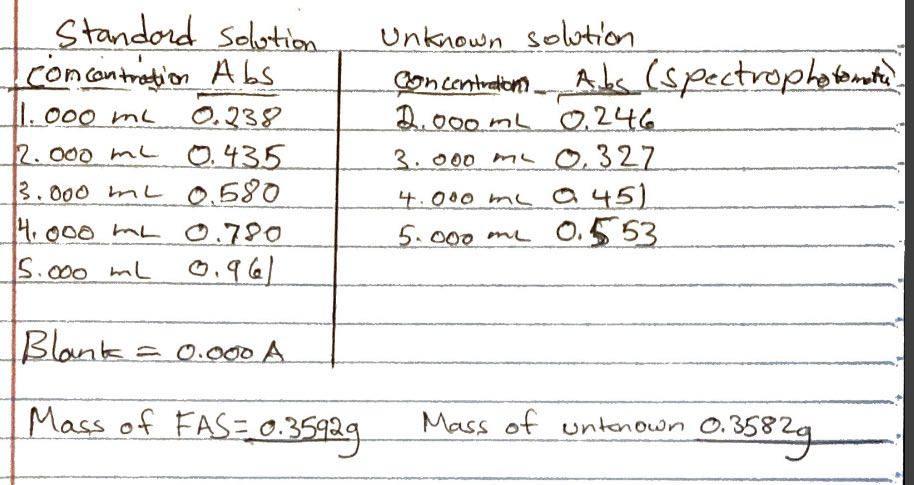 Standard Solution
Concentration Abs
1.000 mL 0.238
2.000 mL 0.435
3.000 mL 0.580
4.000 mL 0.780
5.000 mL 0.961
Blank = 0.000 A
Unknown solution
Concentration Abs (spectrophotometer)
2.000 mL 0.246
3.000 mL 0.327
4.000 mL 0.451
5.000 mL 0.553
Mass of FAS = 0.3592g
Mass of unknown 0.3582g